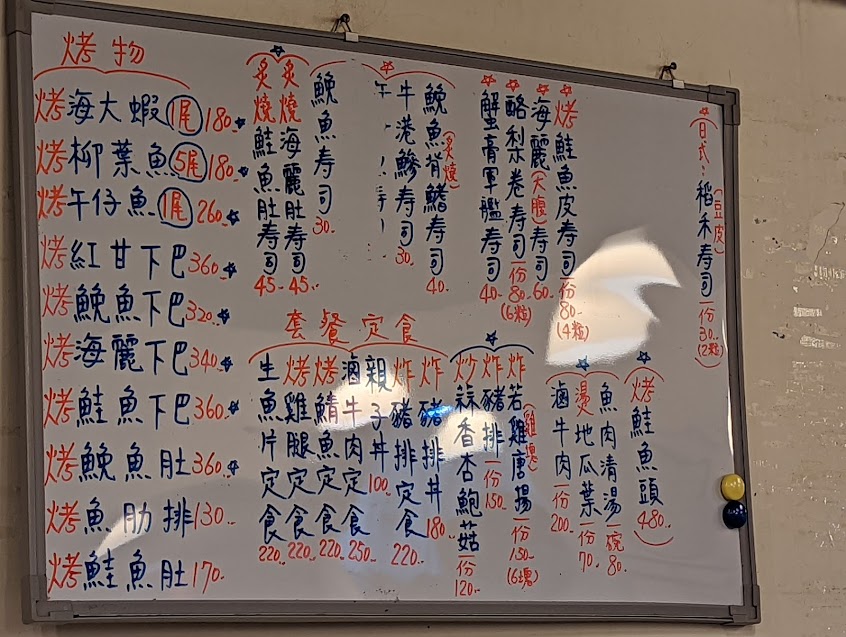 烤物
烤海大蝦 1尾 180.
烤柳葉魚 5尾 180.
烤午仔魚 1尾 260.
烤紅甘下巴 360.
烤鮸魚下巴 320.
烤海麗下巴 340.
烤鮭魚下巴 360.
烤鮸魚肚 360.
烤魚肋排 130.
烤鮭魚肚 170.
日式:稻禾寿司(豆皮)一份30.(2粒)
烤鮭魚皮寿司一份80.(4粒)
海麗(大腹)寿司60.
酪梨卷寿司一份80.(6粒)
蟹膏軍艦寿司40.
鮸魚背鰭寿司(炙燒)40.
牛港鰺寿司30.
鮸魚寿司30.
炙燒海麗肚寿司45.
炙燒鮭魚肚寿司45.
套餐定食
烤鮭魚頭480.
魚肉清湯一碗80.
燙地瓜葉一份70.
滷牛肉一份200.
炸若雞唐揚(雞塊)一份150.(6塊)
炸豬排一份150.
炒蒜香杏鮑菇一份120.
炸豬排丼180.
炸豬排定食220.
親子丼100.
滷牛肉定食250.
烤鯖魚定食220.
烤雞腿定食220.
生魚片定食220.